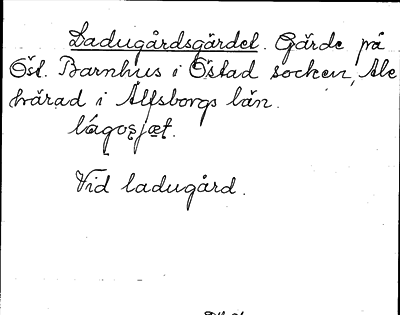 Ladugårdsgärdet. Gärde på
Öst. Barnhus i Östad socken, Ale
härad i Älfsborgs län.
Vid ladugård.